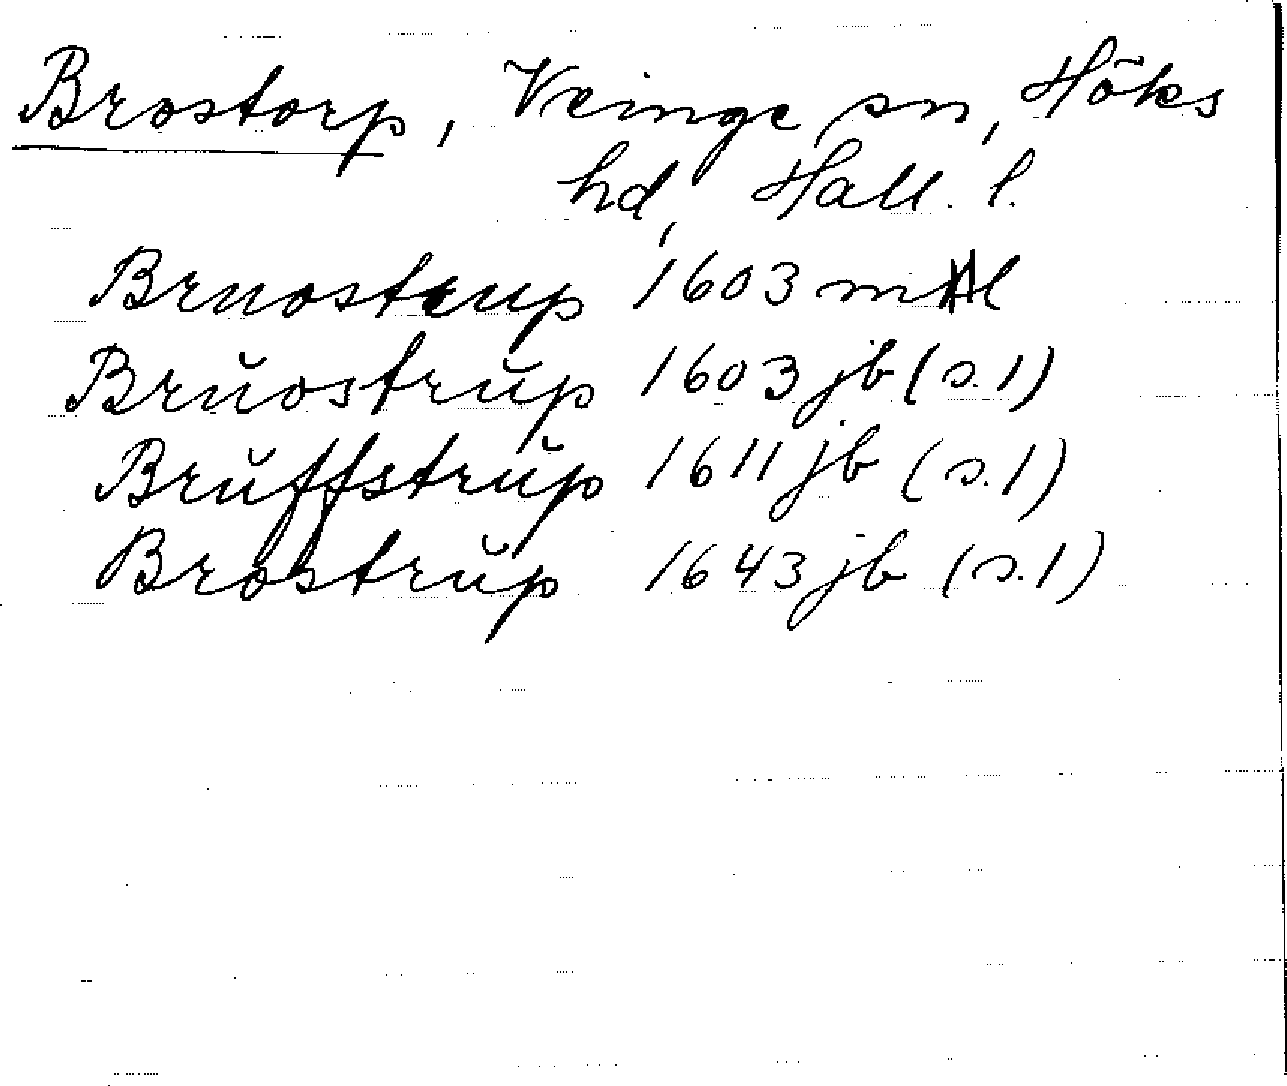 Brostorp, Veinge sn, Höks
hd, Hall. l.
Bruostrup 1603
Brŭostrŭp 1603 jb (s. 1)
Brŭffstrŭp 1611 jb (s. 1)
Brostrŭp 1643 jb (s. 1)